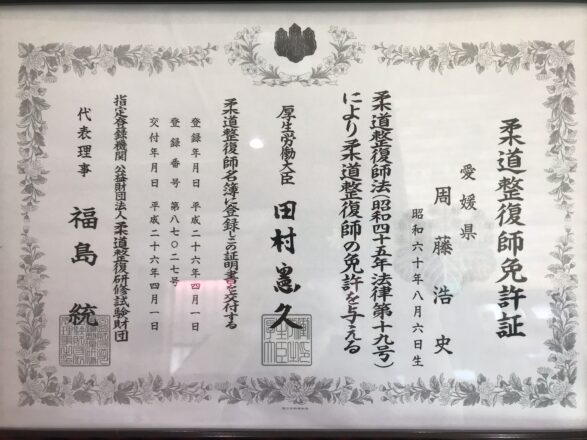 柔道整復師免許証
愛媛県
周藤浩史
昭和六十年八月六日生
柔道整復師法(昭和四十五年法律第十九号)
により柔道整復師の免許を与える
厚生労働大臣 田村憲久
柔道整復師名簿に登録しこの証明書を交付する
登録年月日 平成二十六年四月一日
登録番号 第八七〇二七号
交付年月日 平成二十六年四月一日
指定登録機関 公益財団法人柔道整復研修試験財団
代表理事 福島統